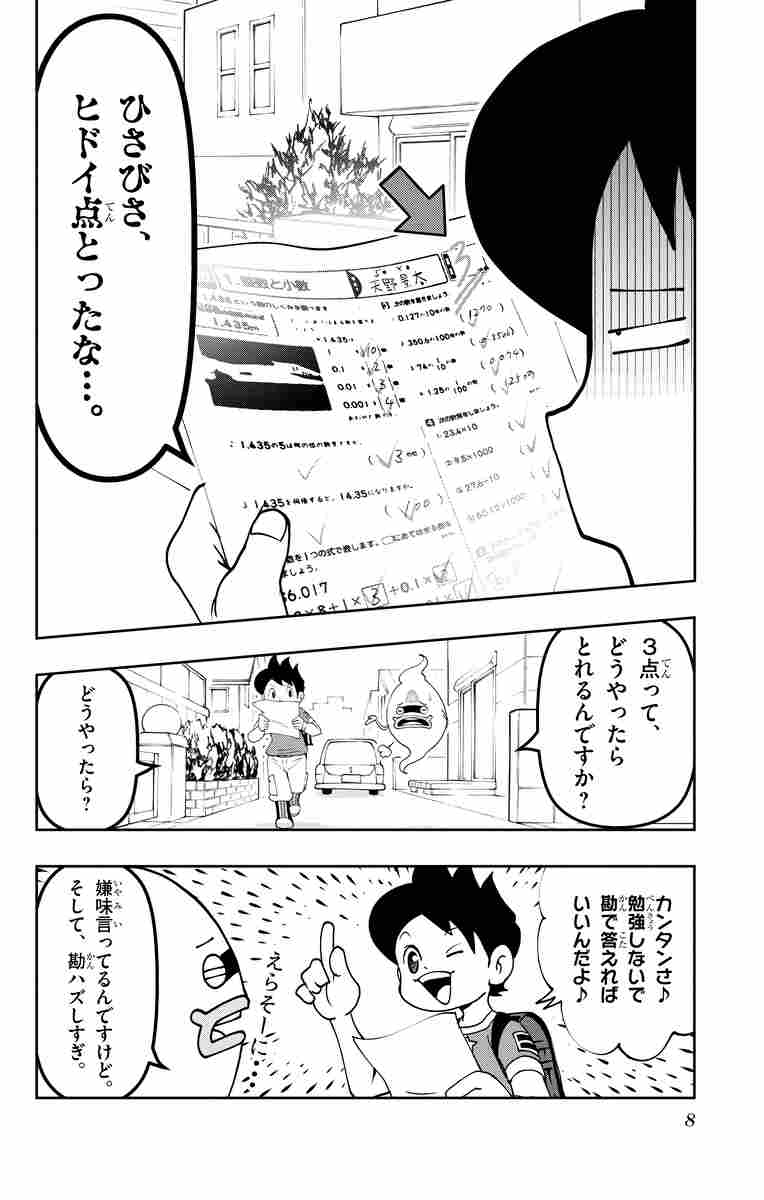 ひさびさ、
ヒドイ点とったな…。
てん
3
1.整数と小数
天野景太
1.435
0.1
0.01
0.001
1.435の5は
(3)
1.435を何倍すると、14.35になりますか。
(100)
数を1つの式で表します。
ましょう。
6.017
×8+1×3+0.1×
次の数を書きましょう
0.127の10
(1270)
(0.074)
次の計算をしましょう。
①23.4×10
３点って、
てん
どうやったら
とれるんですか？
どうやったら？
カンタンさ♪
勉強しないで
べんきょう
勘で答えれば
かん こた
いいんだよ♪
えらそーに…
嫌味言ってるんですけど。
いやみ い
そして、勘ハズしすぎ。
かん
8